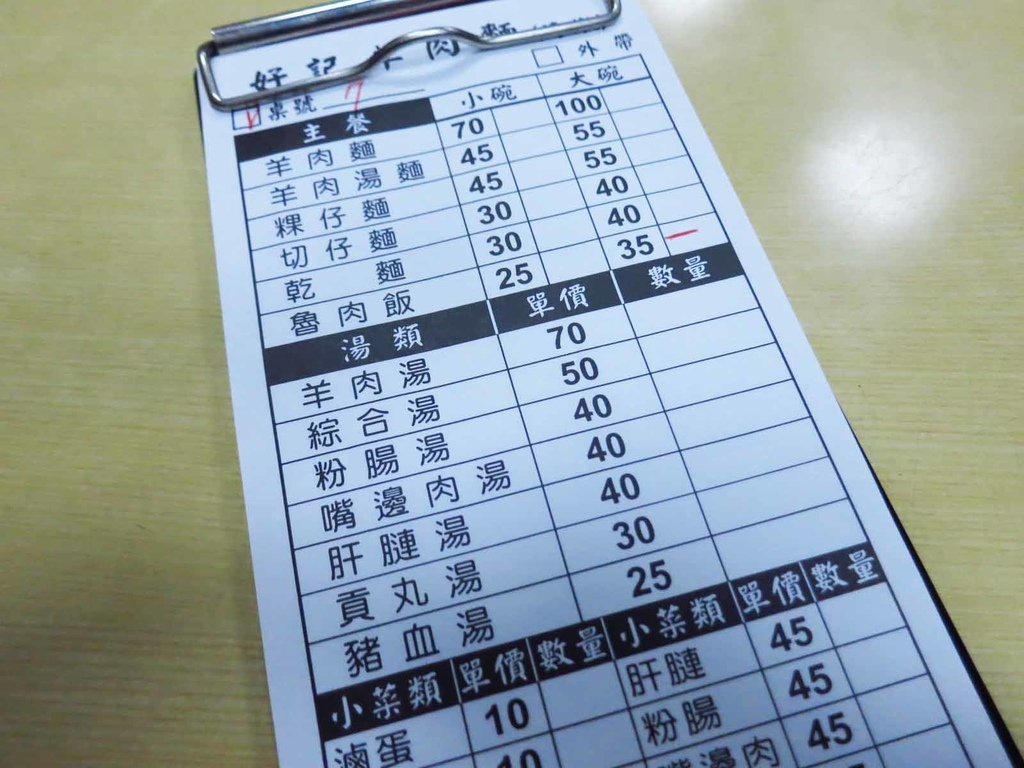 好記羊肉麵
外帶
桌號 7
主餐 小碗 大碗
羊肉麵 70 100
羊肉湯麵 45 55
粿仔麵 45 55
切仔麵 30 40
乾麵 30 40
魯肉飯 25 35 一
湯類 單價 數量
羊肉湯 70
綜合湯 50
粉腸湯 40
嘴邊肉湯 40
肝腱湯 40
貢丸湯 30
豬血湯 25
小菜類 單價 數量 小菜類 單價 數量
滷蛋 10 肝腱 45
10 粉腸 45
嘴邊肉 45